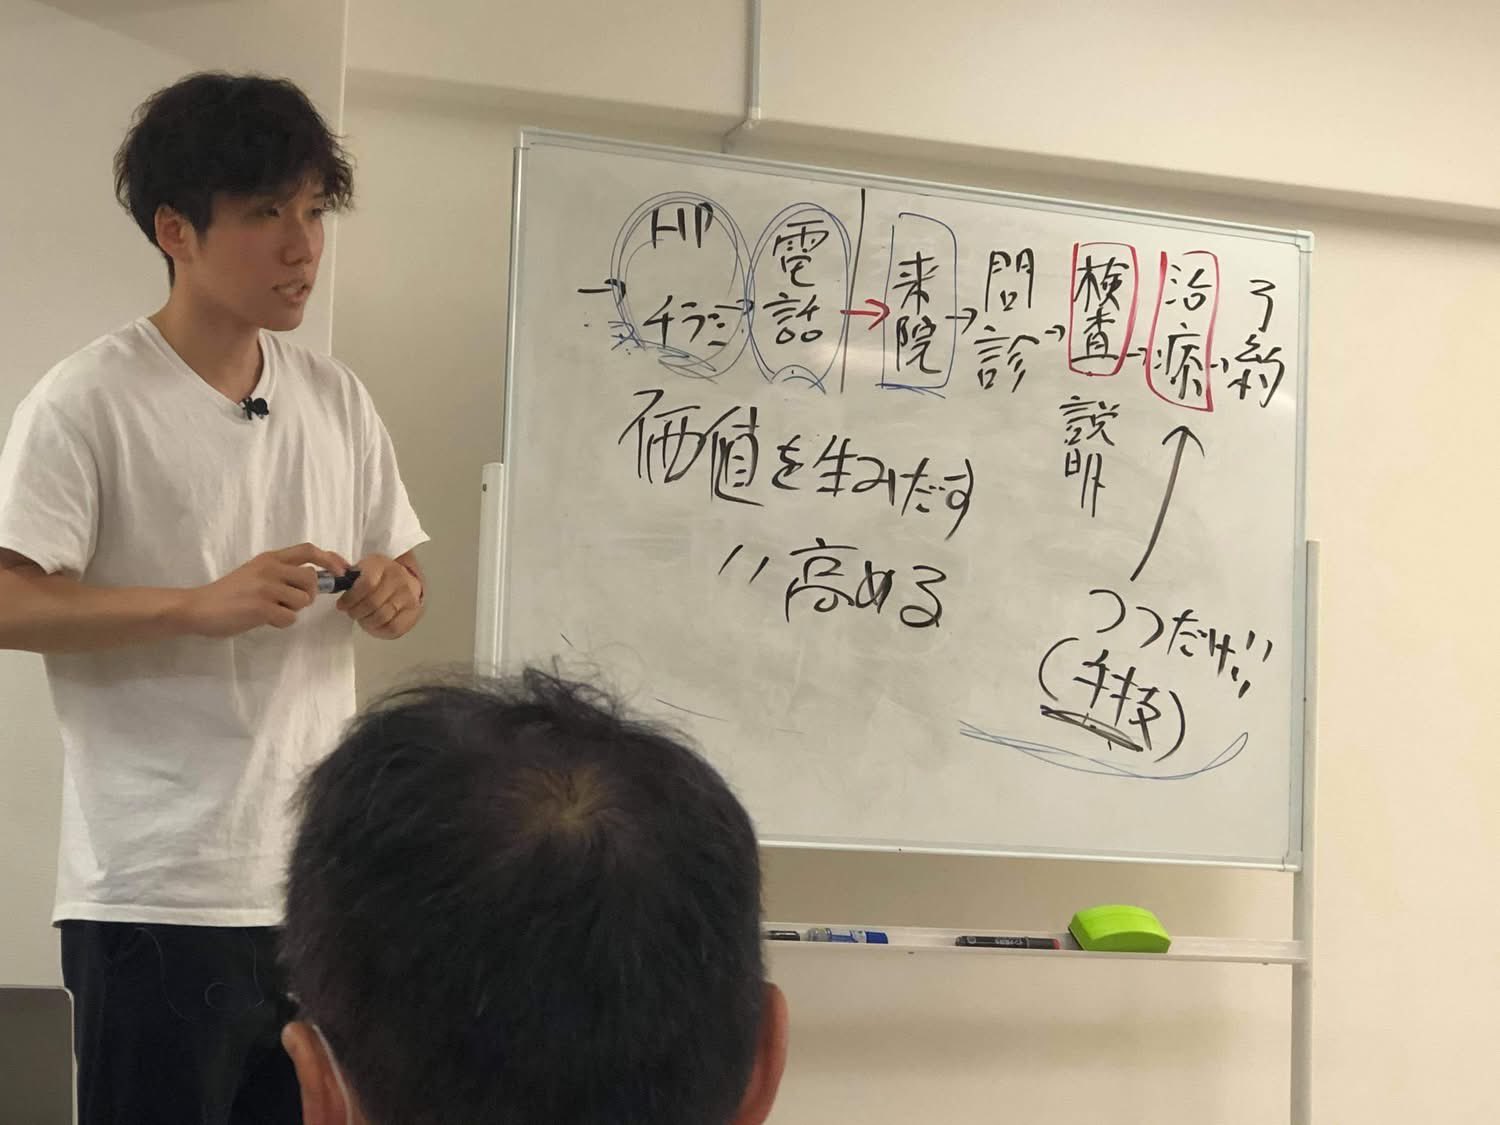 → HP チラシ → 電話 → 来院 → 問診 → 検査 → 治療 → 予約
説明
価値を生みだす
〃高める
ココだけ!!
(手技)